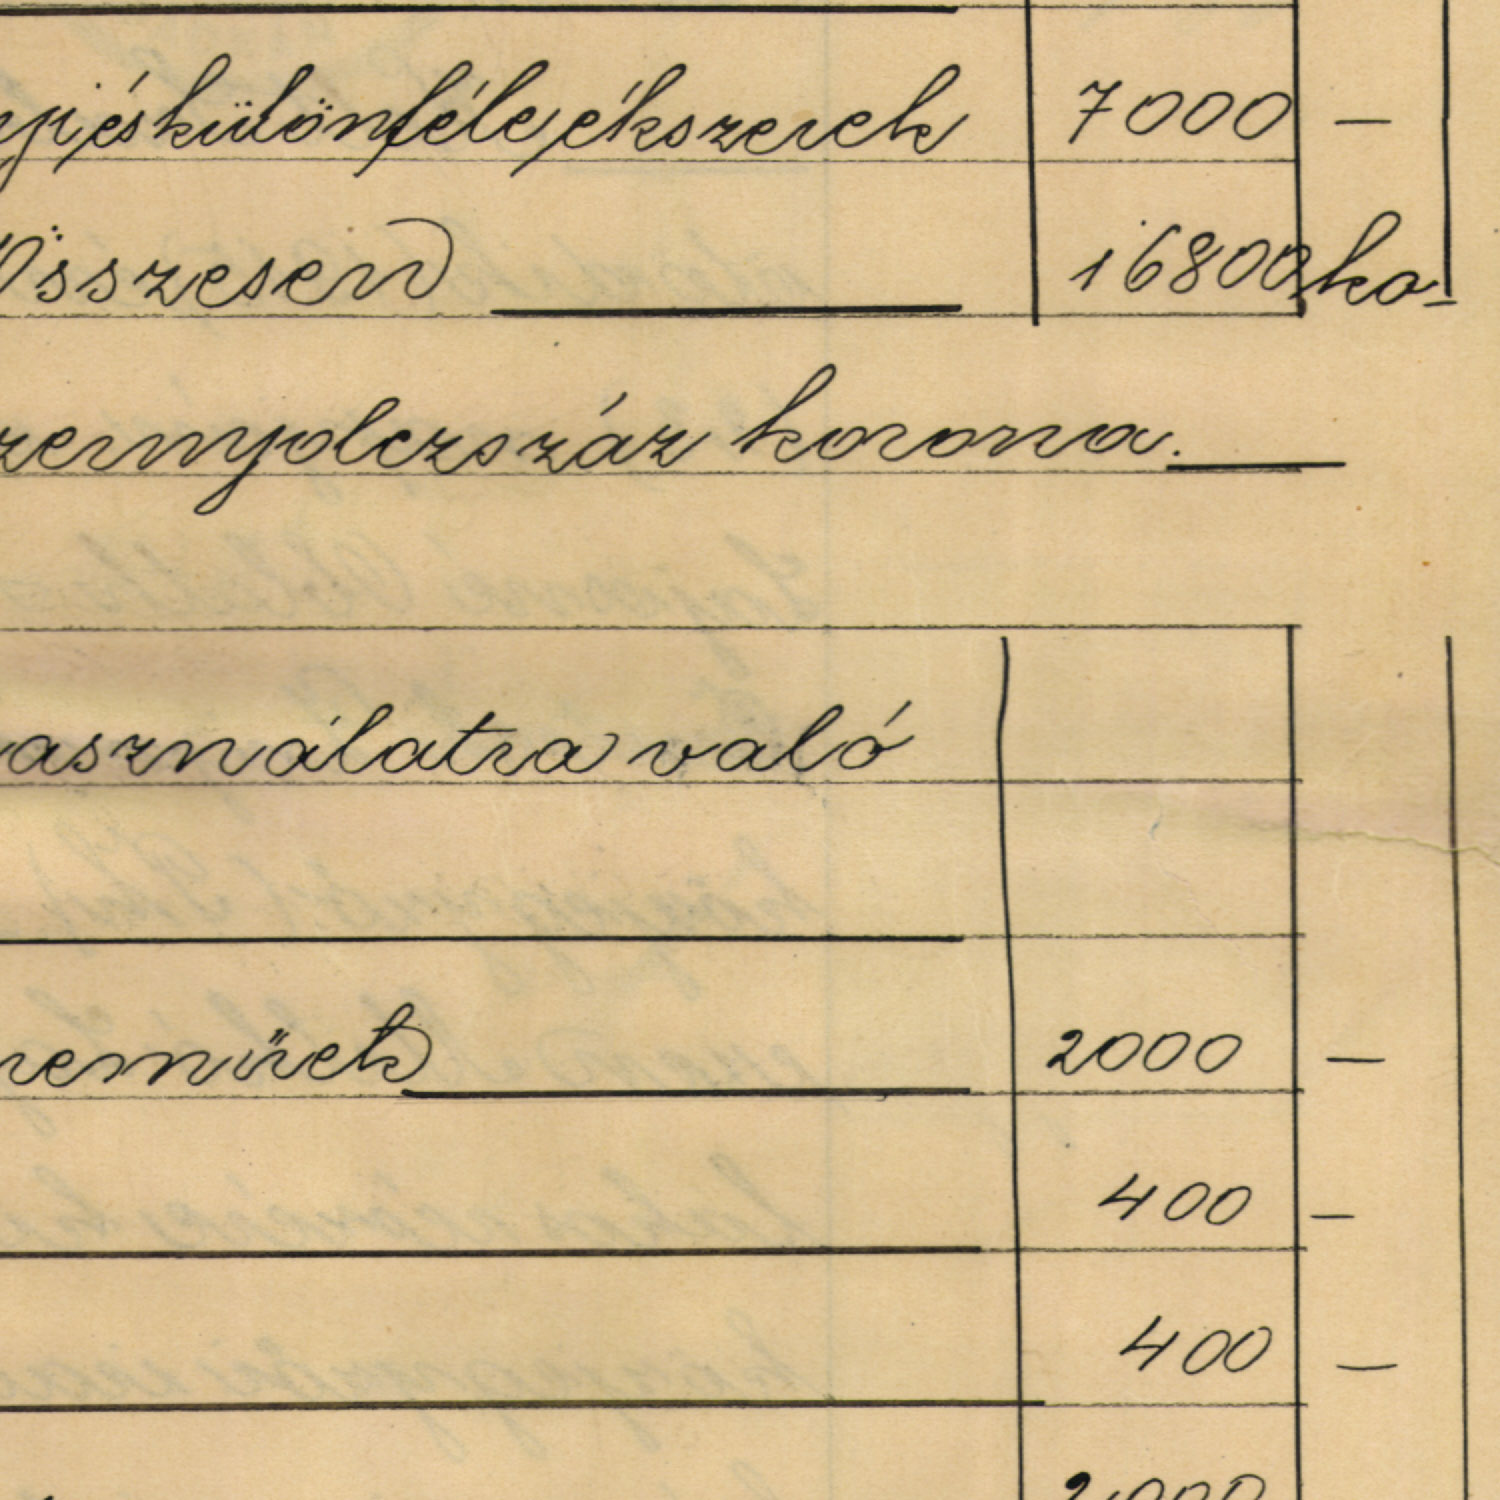 és különféle ékszerek 7000 —
Összesen 16800 ko-
zernyolczszáz korona.
használatra való
neműek 2000 —
400 —
400 —
2000